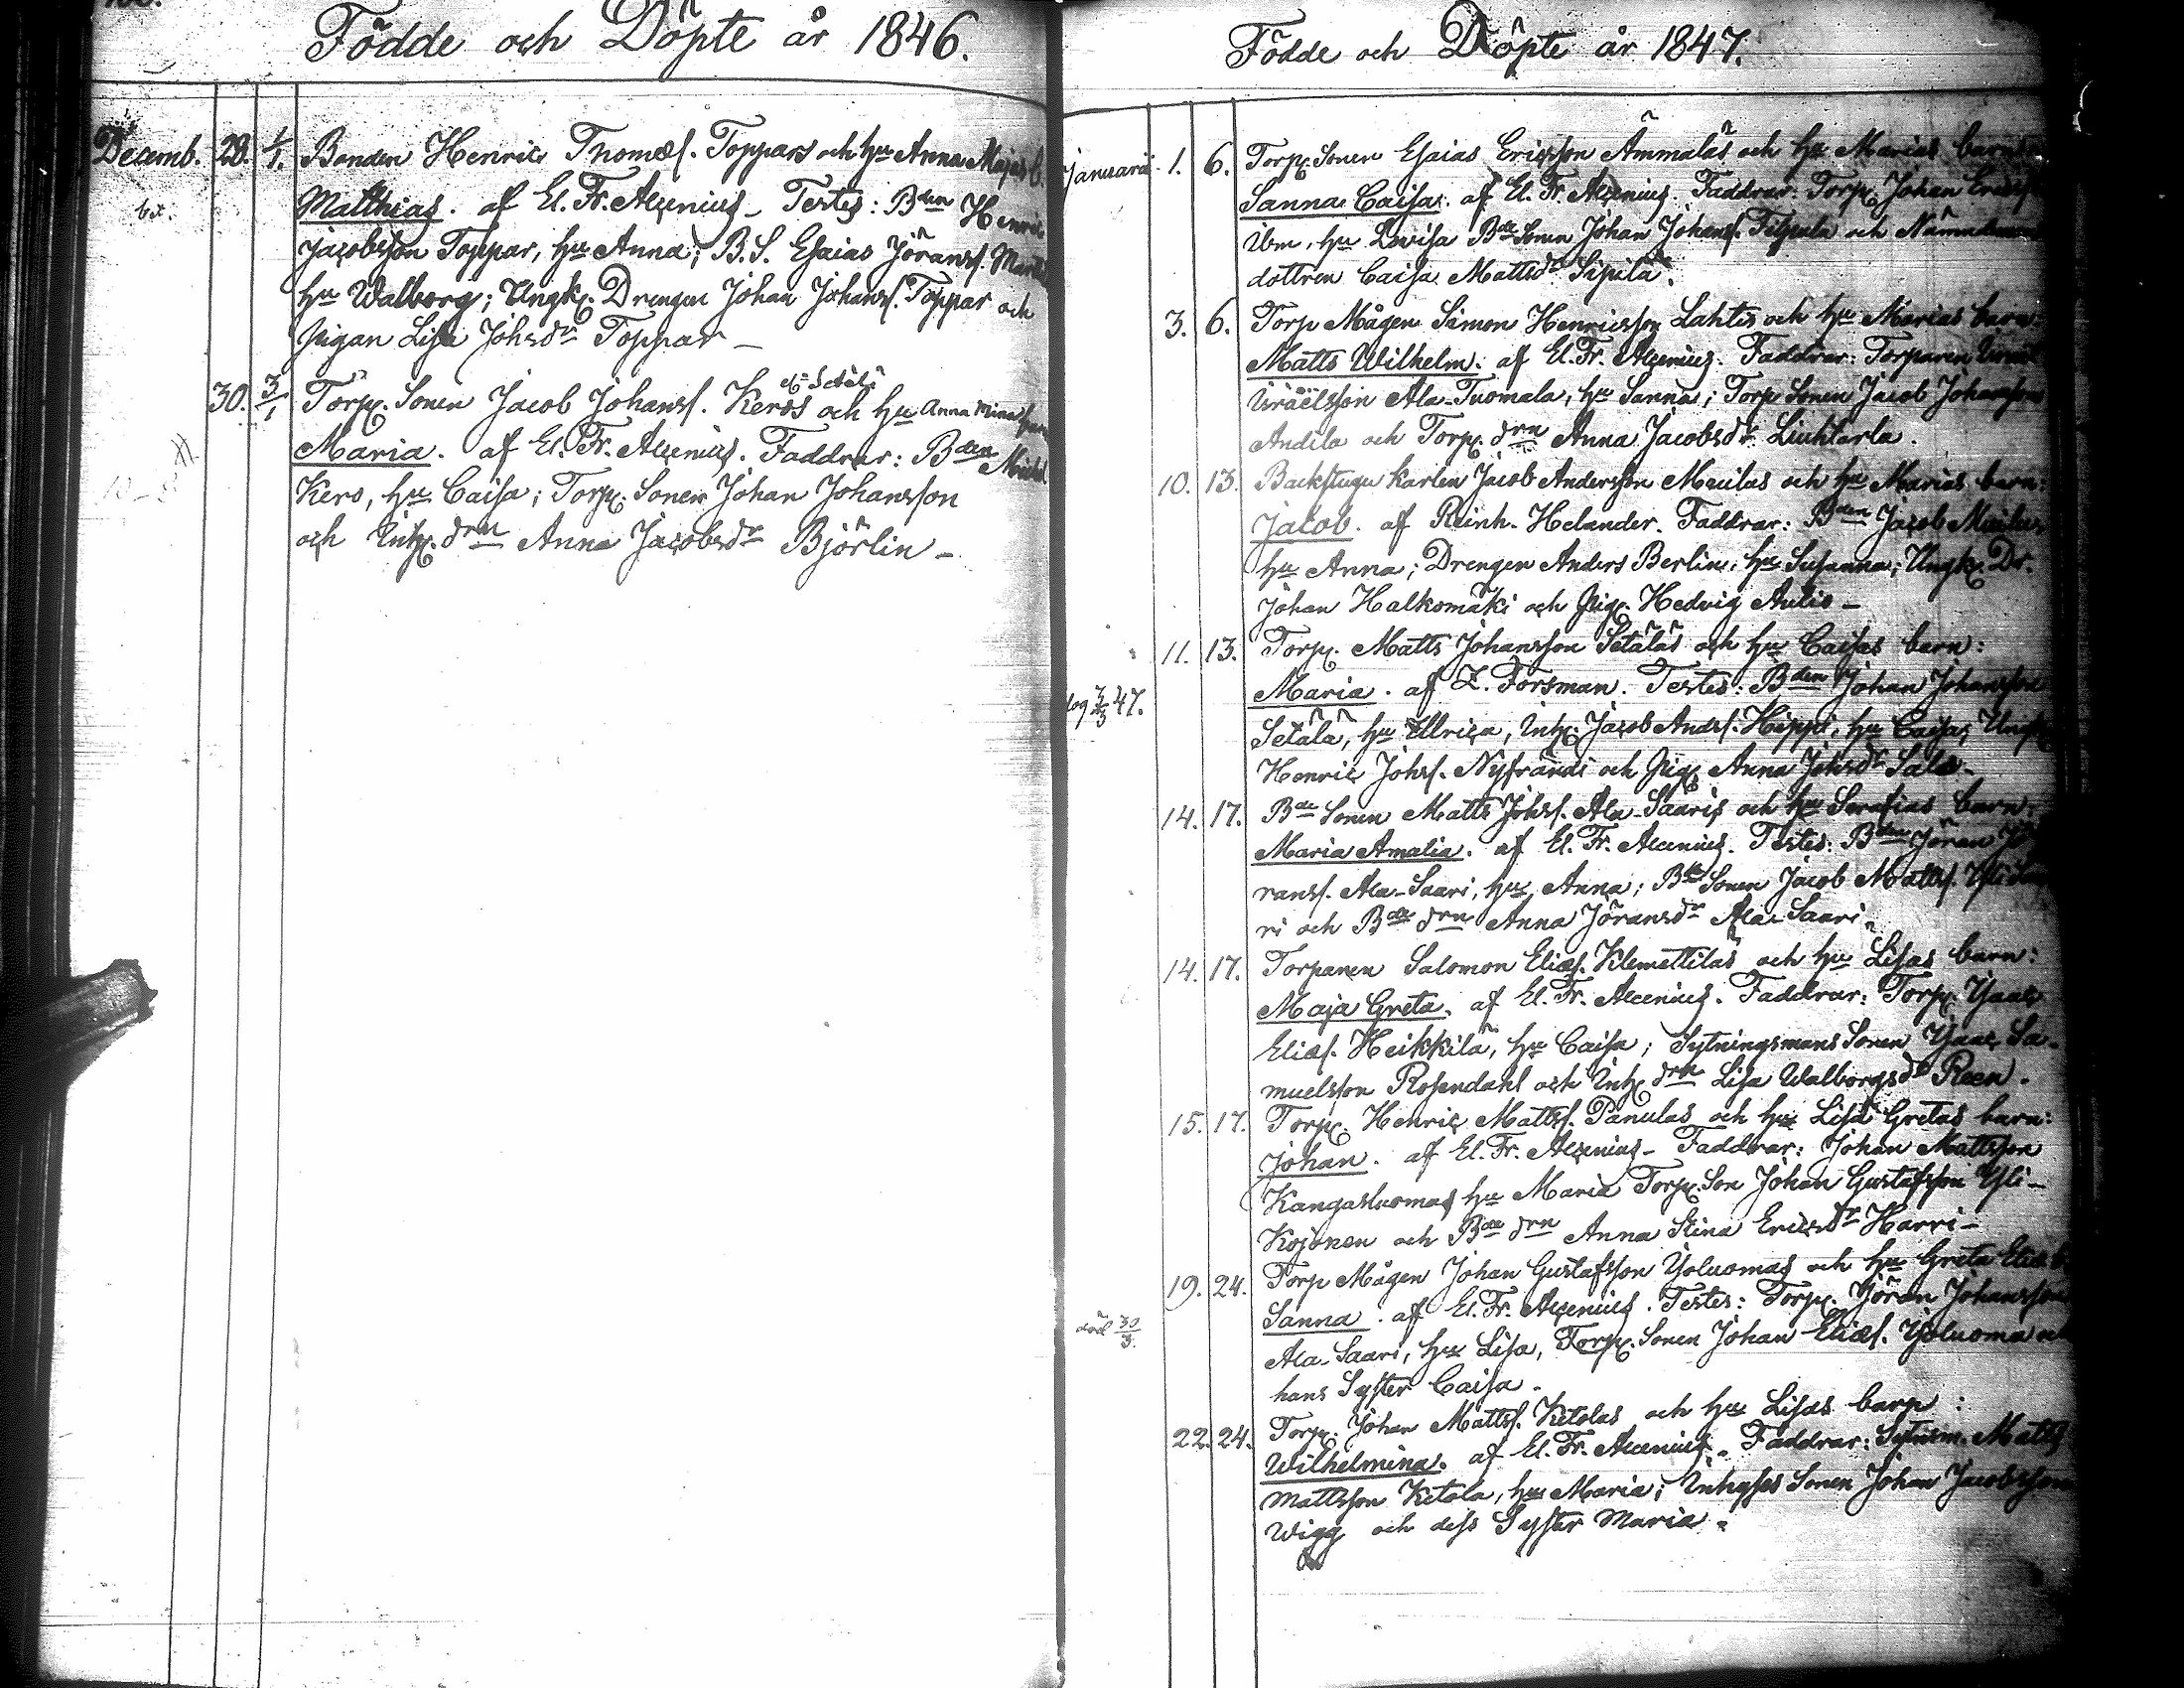 Födde och Döpte år 1846.
Decemb. 28. 1/1. Bonden Henric Thomæs. Toppars och hu Anna Majas b.
Matthias. af El. Fr. Alcenius_ Testes: Bden Henric
Jacobsson Toppar, hu Anna; B.S. Esaias Jöranss.
hu Walborg; Ungk. Drengen Johan Johanss. Toppar och
Pigan Lisa Johsdr Toppar _
30. 3/1 Torp. Sonen Jacob Johanss. Keros och hu Anna Mina
Maria. af El. Fr. Alcenius. Faddrar: Bden
Kero, hu Caisa; Torp. Sonen Johan Johansson
och Inh. drn Anna Jacobsdr Björlin _
Födde och Döpte år 1847.
Januarii 1. 6. Torp. Sonen Esaias Ericsson Ämmäläs och hu Marias barn:
Sanna Caisa. af El. Fr. Alcenius. Faddrar: Torp. Johan
ibm, hu Lovisa Bde Sonen Johan Johanss. och
dottren Caisa Mattsdr Sipilä.
3. 6. Torp Mågen Simon Henricsson Lahtis och hu Marias barn:
Matts Wilhelm. af El. Fr. Alcenius. Faddrar: Torparen
Israëlsson Ala-Tuomala, hu Sanna; Torp Sonen Jacob Johansson
Andila och Torp. drn Anna Jacobsdr Liuhtarla.
10. 13. Backstugu karlen Jacob Andersson Meulas och hu Marias barn:
Jacob. af Reinh. Helander. Faddrar: Bden Jacob
hu Anna; Drengen Anders Berlin, hu Susanna; Ungk. Dr.
Johan Halkomäki och Pig. Hedvig Aulio _
11. 13. Torp. Matts Johansson Setäläs och hu Caisas barn:
Maria. af Z. Forsman. Testes: Bden Johan Johansson
Setälä, hu Ullrica, Inh. Jacob Anderss. Hippi, hu Caisa,
Henric Johss. Nyfränti och Pig. Anna Johsdr Salo _
14. 17. Bde Sonen Matts Johss. Ala-Saaris och hu Serafias barn:
Maria Amalia. af El. Fr. Alcenius. Testes: Bden Jöran Jö
ranss. Ala-Saari, hu Anna; Bde Sonen Jacob Mattss.
ri och Bde drn Anna Jöransdr Ala-Saari.
14. 17. Torparen Salomon Eliæs. Klemettiläs och hu Lisas barn:
Maja Greta. af El. Fr. Alcenius. Faddrar: Torp. Isaac
Eliæs. Heikkilä, hu Caisa; Sytningsmans Sonen Isaac Sa-
muelsson Rosendahl och Inh. drn Lisa Walborgsdr Reen.
15. 17. Torp. Henric Mattss. Panulas och hu Lisa Gretas barn:
Johan. af El. Fr. Alcenius_ Faddrar: Johan Mattsson
Kangasluomas hu Maria Torp. Son Johan Gustafsson Yli-
Kojonen och Bde drn Anna Stina Ericsdr Harri _
19. 24. Torp Mågen Johan Gustafsson Yoluomas och hu Greta
Sanna. af El. Fr. Alcenius. Testes: Torp. Jöran Johansson
Ala-Saari, hu Lisa, Torp. Sonen Johan Eliæs. Yoluoma och
hans Syster Caisa.
död 30/3.
22. 24. Torp. Johan Mattss. Ketolas och hu Lisas barn:
Wilhelmina. af El. Fr. Alcenius. Faddrar: Sytnsm. Matts
Mattsson Ketola, hu Maria; Inhyses Sonen Johan Jacobsson
Wigg och dess Syster Maria.